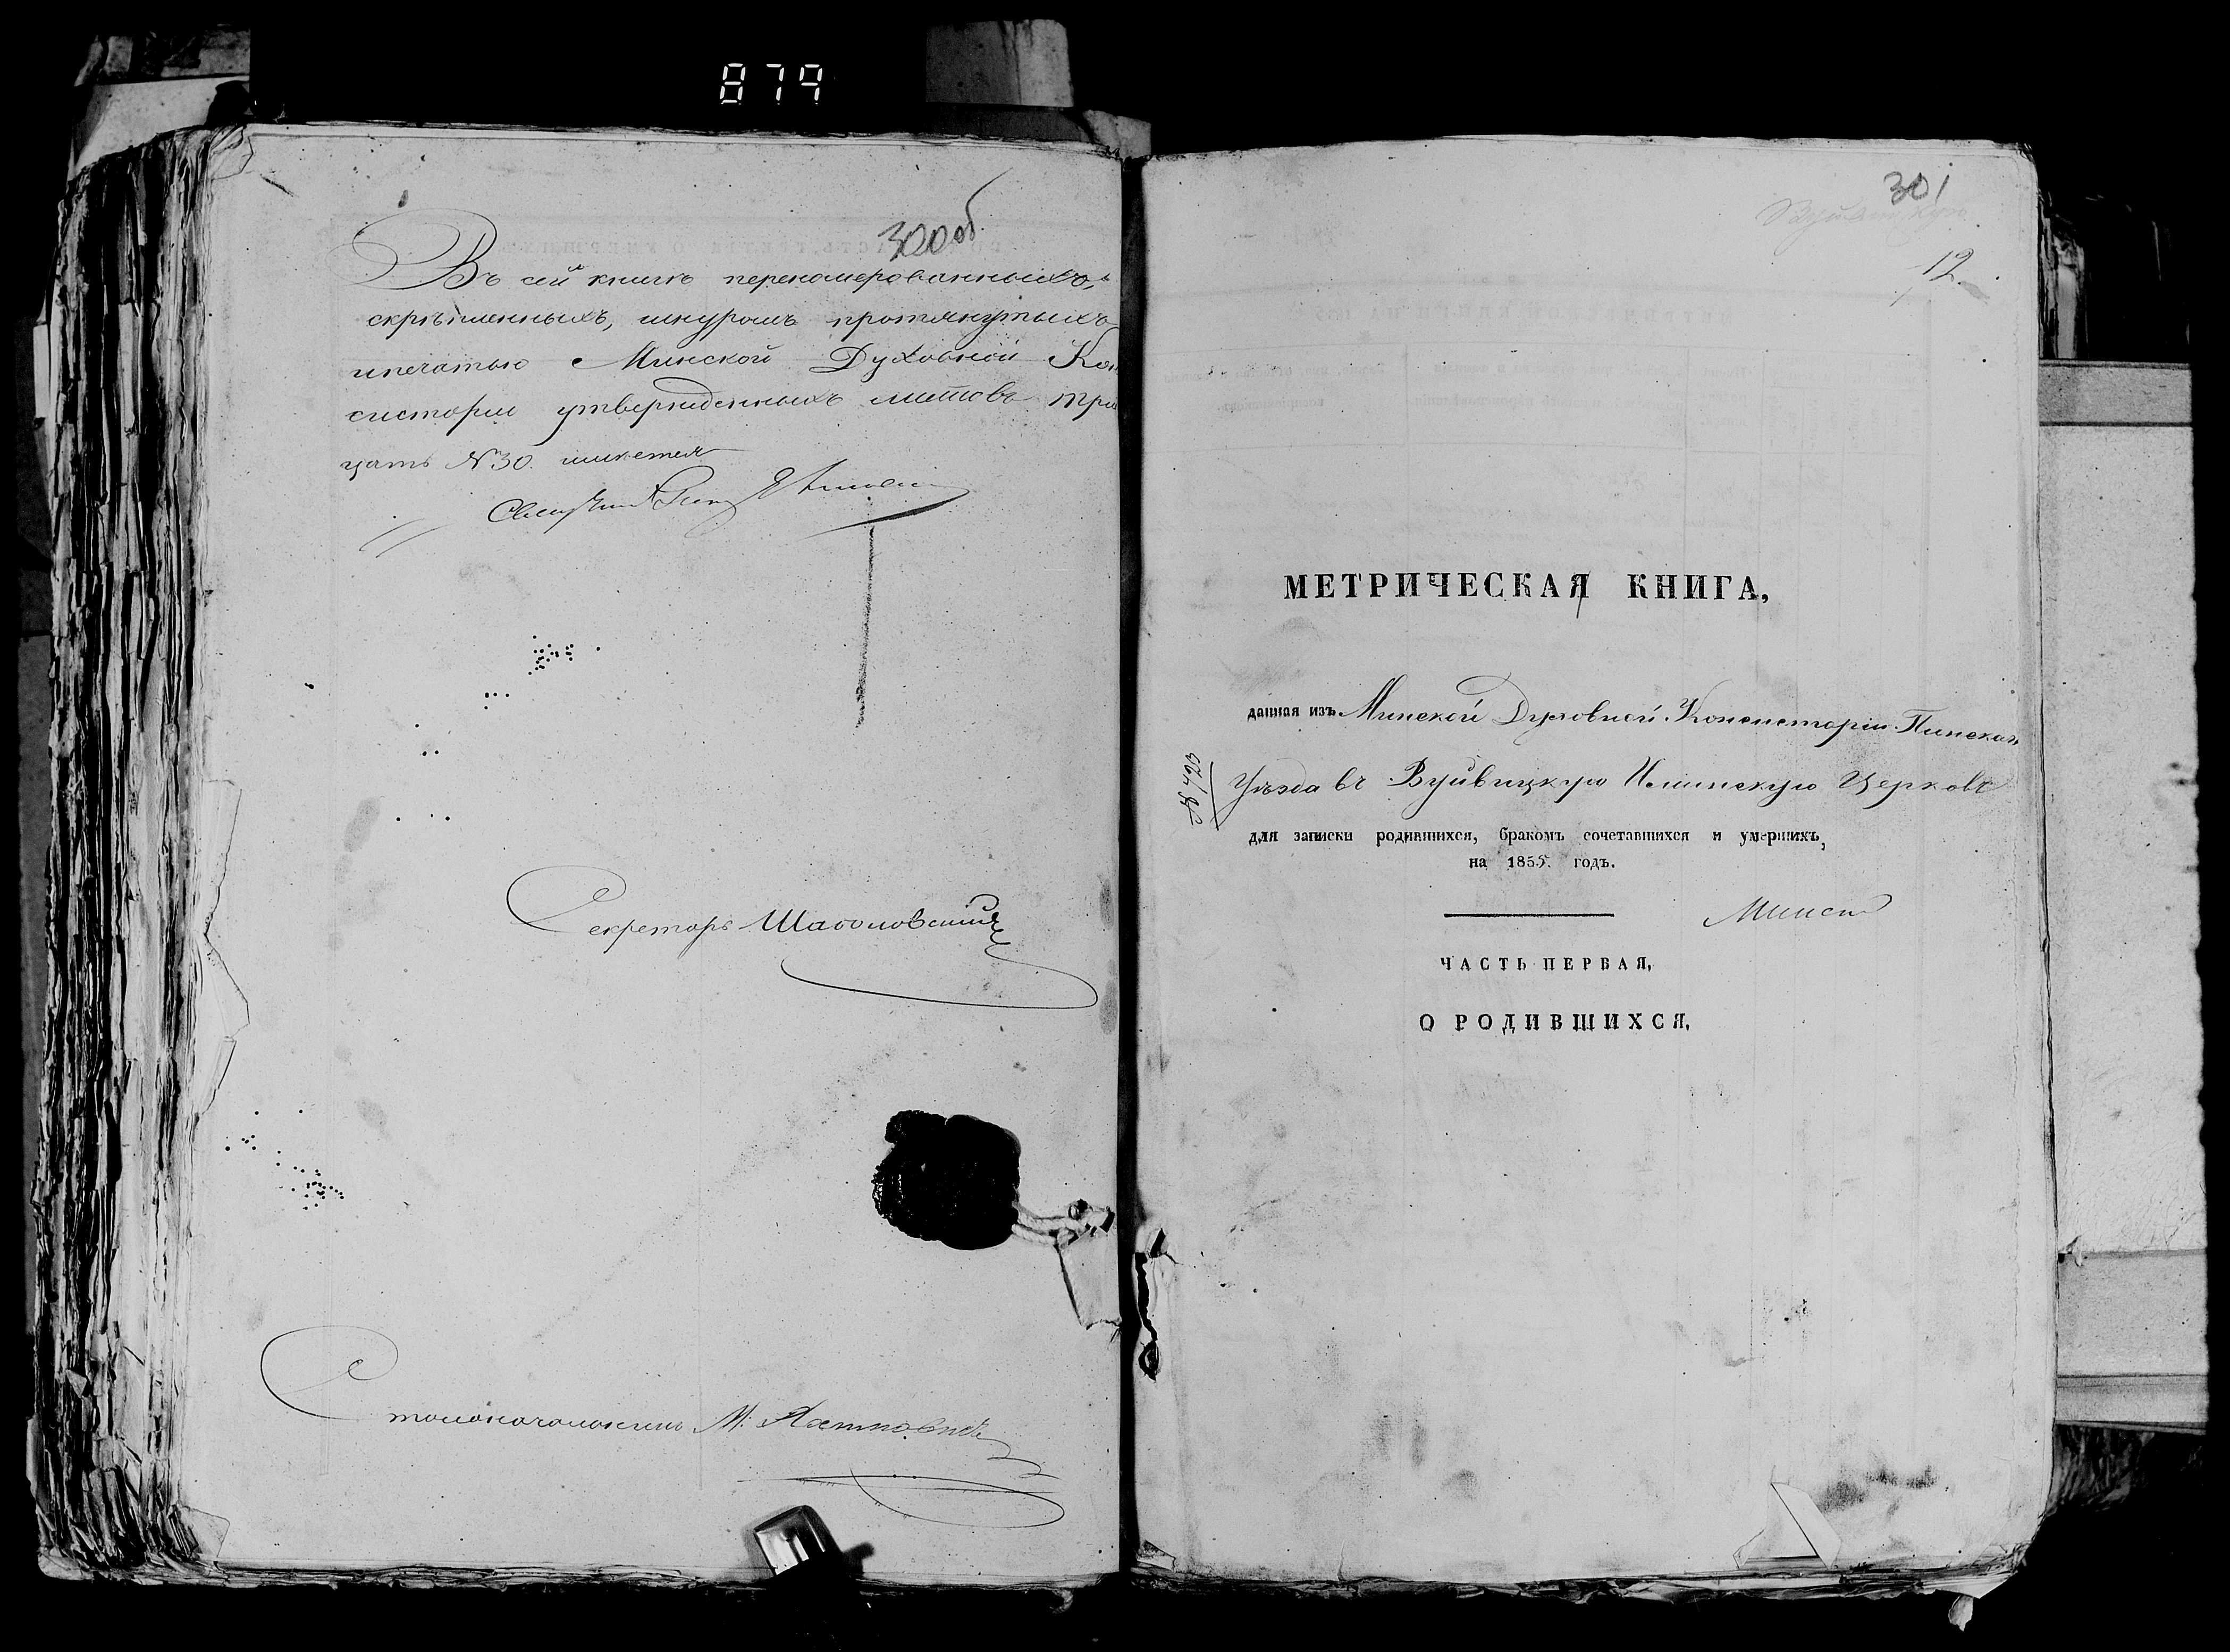 879
300 об.
Въ сей книгѣ перенomeрованныхъ,
скрѣпленныхъ, шнуромъ протянутыхъ
и печатью Минской Духовной Кон
систоріи утвержденныхъ листовъ трид
цать №30. имѣется
Секретарь
Столоначальникъ М.
301
12.
МЕТРИЧЕСКАЯ КНИГА,
данная изъ Минской Духовной Консисторіи Пинскаго
Уѣзда въ Вуйвицкую Ильинскую Церковь
для записки родившихся, бракомъ сочетавшихся и умершихъ,
на 1855. годъ.
ЧАСТЬ ПЕРВАЯ,
О РОДИВШИХСЯ.